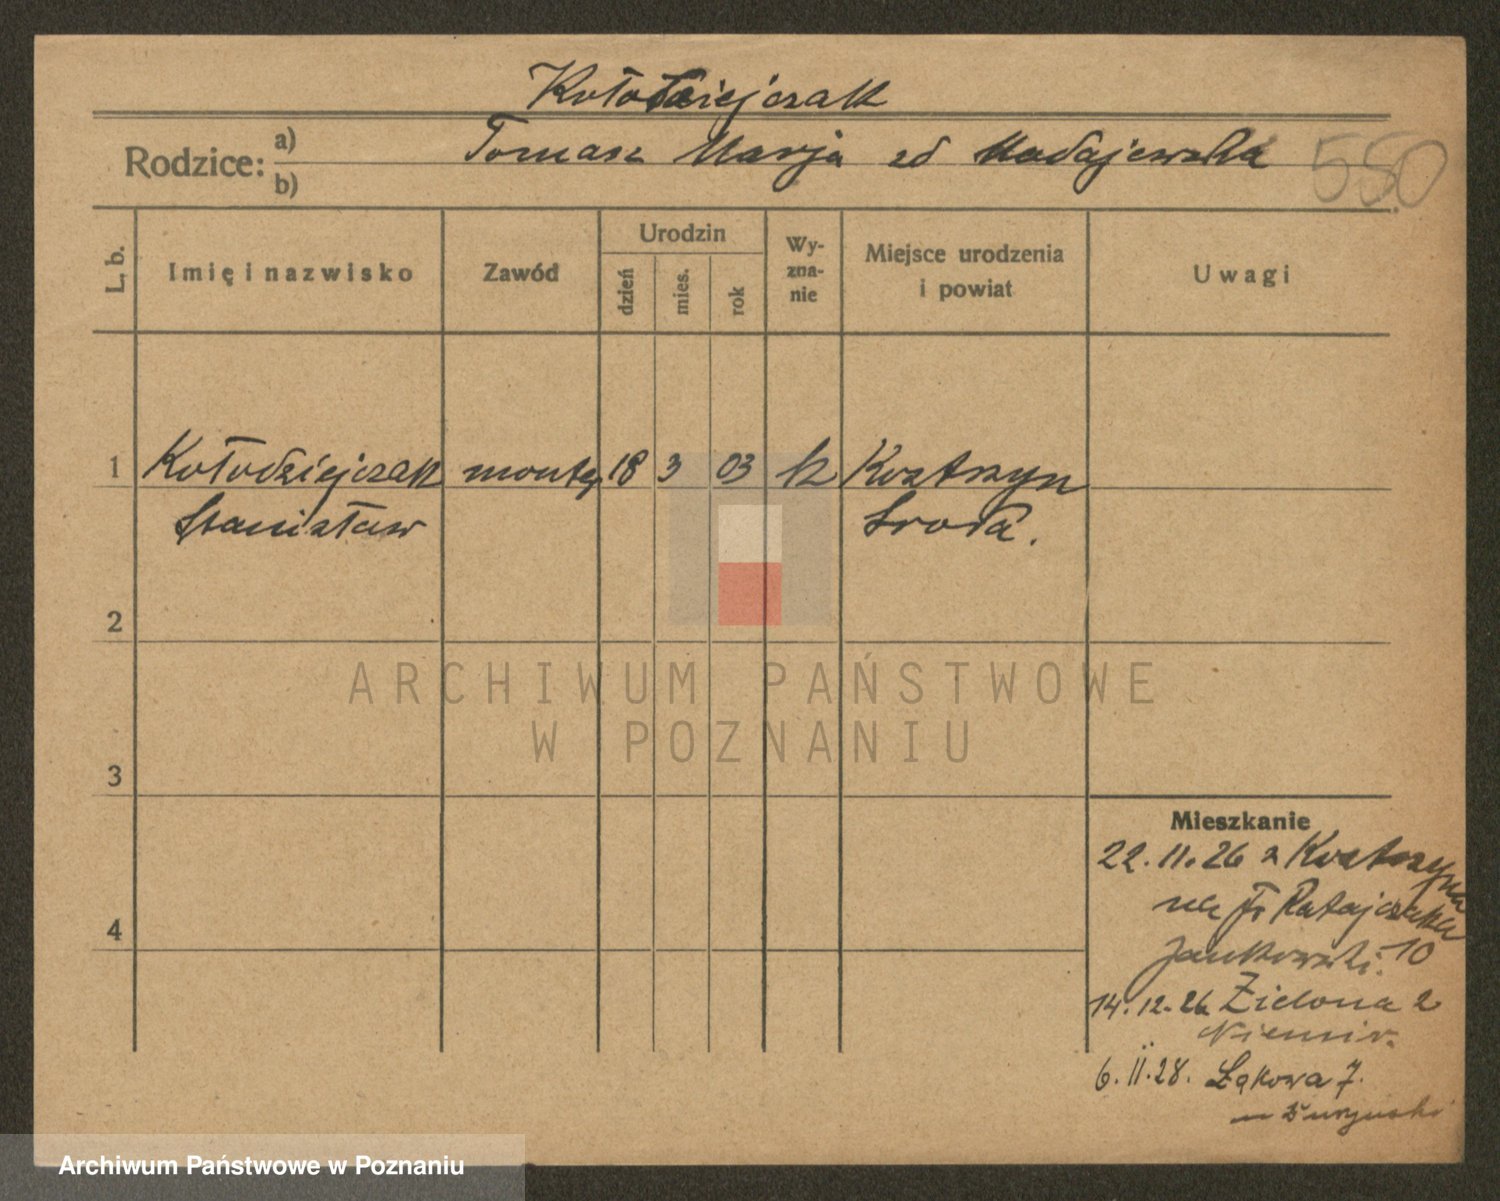 Kołodziejczak
Rodzice: a) b)
Tomasz Marja zd Madajewska
550
L. b.
Imię i nazwisko
Zawód
Urodzin
dzień
mies.
rok
Wy-
zna-
nie
Miejsce urodzenia
i powiat
Uwagi
1 Kołodziejczak monter 18 3 03 k Kostrzyn
Stanisław Środa.
2
3
4
Mieszkanie
22.11.26 z Kostrzyna
na Fr Ratajczaka
Jankowski. 10
14.12.26 Zielona 2
6.II.28. Łąkowa 7.
ARCHIWUM PAŃSTWOWE
W POZNANIU
Archiwum Państwowe w Poznaniu